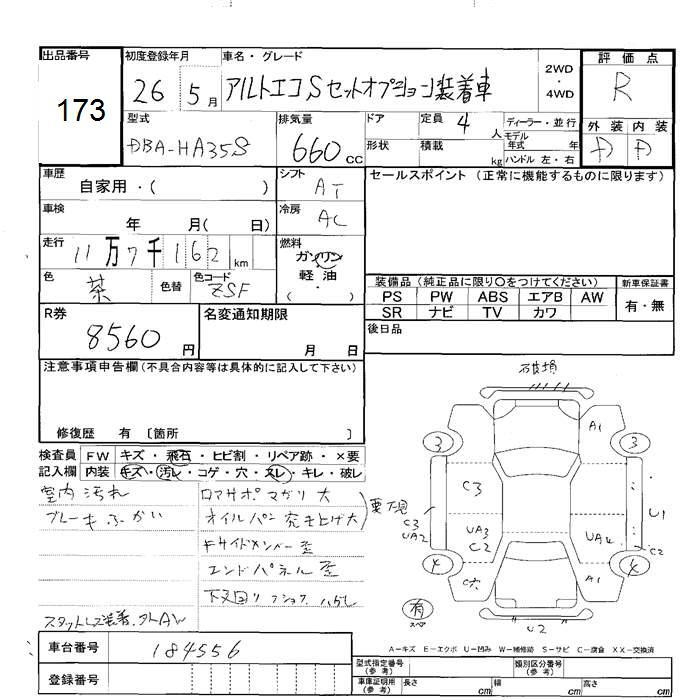 出品番号
173
初度登録年月
26 5月
車名・グレード
アルトエコSセットオプション装着車
2WD
・
4WD
評価点
R
外装 内装
D D
型式
DBA-HA35S
排気量
660 CC
ドア
定員 4 人
形状
積載 kg
ディーラー・並行
モデル年式 年
ハンドル 左・右
車歴
自家用・( )
シフト
AT
セールスポイント (正常に機能するものに限ります)
車検
年 月( 日)
冷房
AC
走行
11万7千162 km
燃料
ガソリン
軽油
( ・ )
色
茶
色替
色コード
ZSF
装備品 (純正品に限り○をつけてください)
PS PW ABS エアB AW
SR ナビ TV カワ
新車保証書
有・無
R券
8560 円
名変通知期限
月 日
後日品
注意事項申告欄 (不具合内容等は具体的に記入して下さい)
修復歴 有 〔箇所 〕
検査員 FW キズ・飛石・ヒビ割・リペア跡・×要
記入欄 内装 キズ・汚レ・コゲ・穴・ヌレ・キレ・破レ
室内汚れ
ブレーキふかい
ロアサポマガリ大
オイルパン突き上げ大
要下見
キサイドメンバー歪
エンドパネル歪
下叉回り
スタットレス装着、外AW
車台番号
184556
登録番号
破損
A1
3
3
C3
C3
UA2
UA3
C2
UA4
U1
C2
4
4
C穴
A1
有
スペア
U2
A-キズ E-エクボ U-凹み W-補修跡 S-サビ C-腐食 XX-交換済
型式指定番号
(参考)
類別区分番号
(参考)
車庫証明用
(参考)
長さ cm
幅 cm
高さ cm